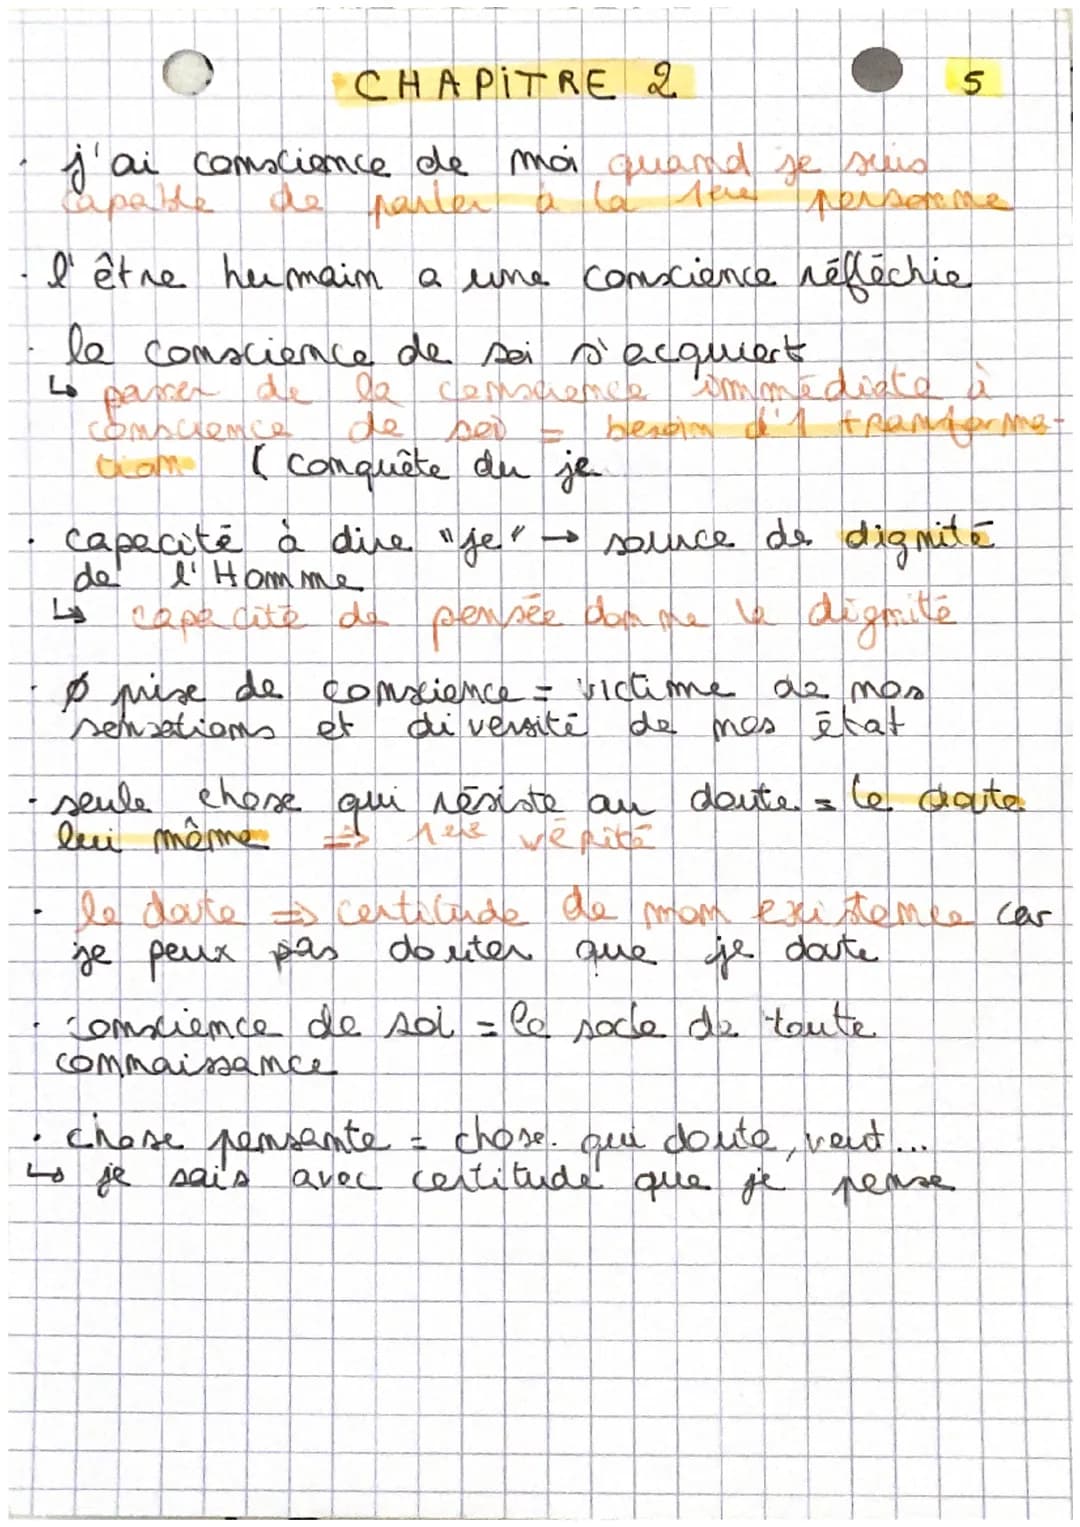 CHAPITRE 2
5
. j'ai conscience de moi quand je suis
capable de parler à la 1ère personne
. l'être humain a une conscience réfléchie
. la conscience de soi s'acquiert
↳ passer de la conscience immédiate à
conscience de soi = besoin d'1 transforma-
tion ( conquête du je
. capacité à dire "je" → source de dignité
de l'Homme
↳ capacité de pensée donne la dignité
. Ø prise de conscience = victime de nos
sensations et diversité de nos état
. seule chose qui résiste au doute = le doute
lui même ⇒ 1ère vérité
. le doute ⇒ certitude de mon existence car
je peux pas douter que je doute
. conscience de soi = le socle de toute
connaissance
. chose pensante = chose qui doute, veut...
↳ je sais avec certitude que je pense